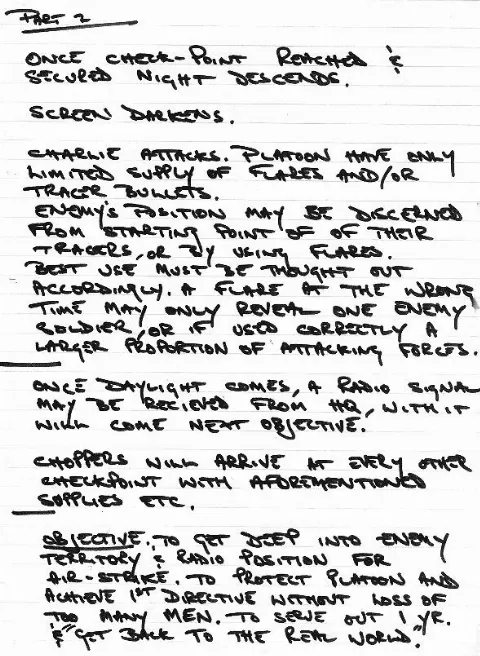 PART 2
ONCE CHECK-POINT REACHED &
SECURED NIGHT DESCENDS.
SCREEN DARKENS.
CHARLIE ATTACKS. PLATOON HAVE ONLY
LIMITED SUPPLY OF FLARES AND/OR
TRACER BULLETS.
ENEMY'S POSITION MAY BE DISCERNED
FROM STARTING POINT OF OF THEIR
TRACERS, OR BY USING FLARES.
BEST USE MUST BE THOUGHT OUT
ACCORDINGLY. A FLARE AT THE WRONG
TIME MAY ONLY REVEAL ONE ENEMY
SOLDIER, OR IF USED CORRECTLY A
LARGER PROPORTION OF ATTACKING FORCES.
ONCE DAYLIGHT COMES, A RADIO SIGNAL
MAY BE RECIEVED FROM HQ, WITH IT
WILL COME NEXT OBJECTIVE.
CHOPPERS WILL ARRIVE AT EVERY OTHER
CHECKPOINT WITH AFOREMENTIONED
SUPPLIES ETC.
OBJECTIVE. TO GET DEEP INTO ENEMY
TERRITORY & RADIO POSITION FOR
AIR-STRIKE. TO PROTECT PLATOON AND
ACHIEVE 1ST DIRECTIVE WITHOUT LOSS OF
TOO MANY MEN. TO SERVE OUT 1 YR.
& "GET BACK TO THE REAL WORLD."